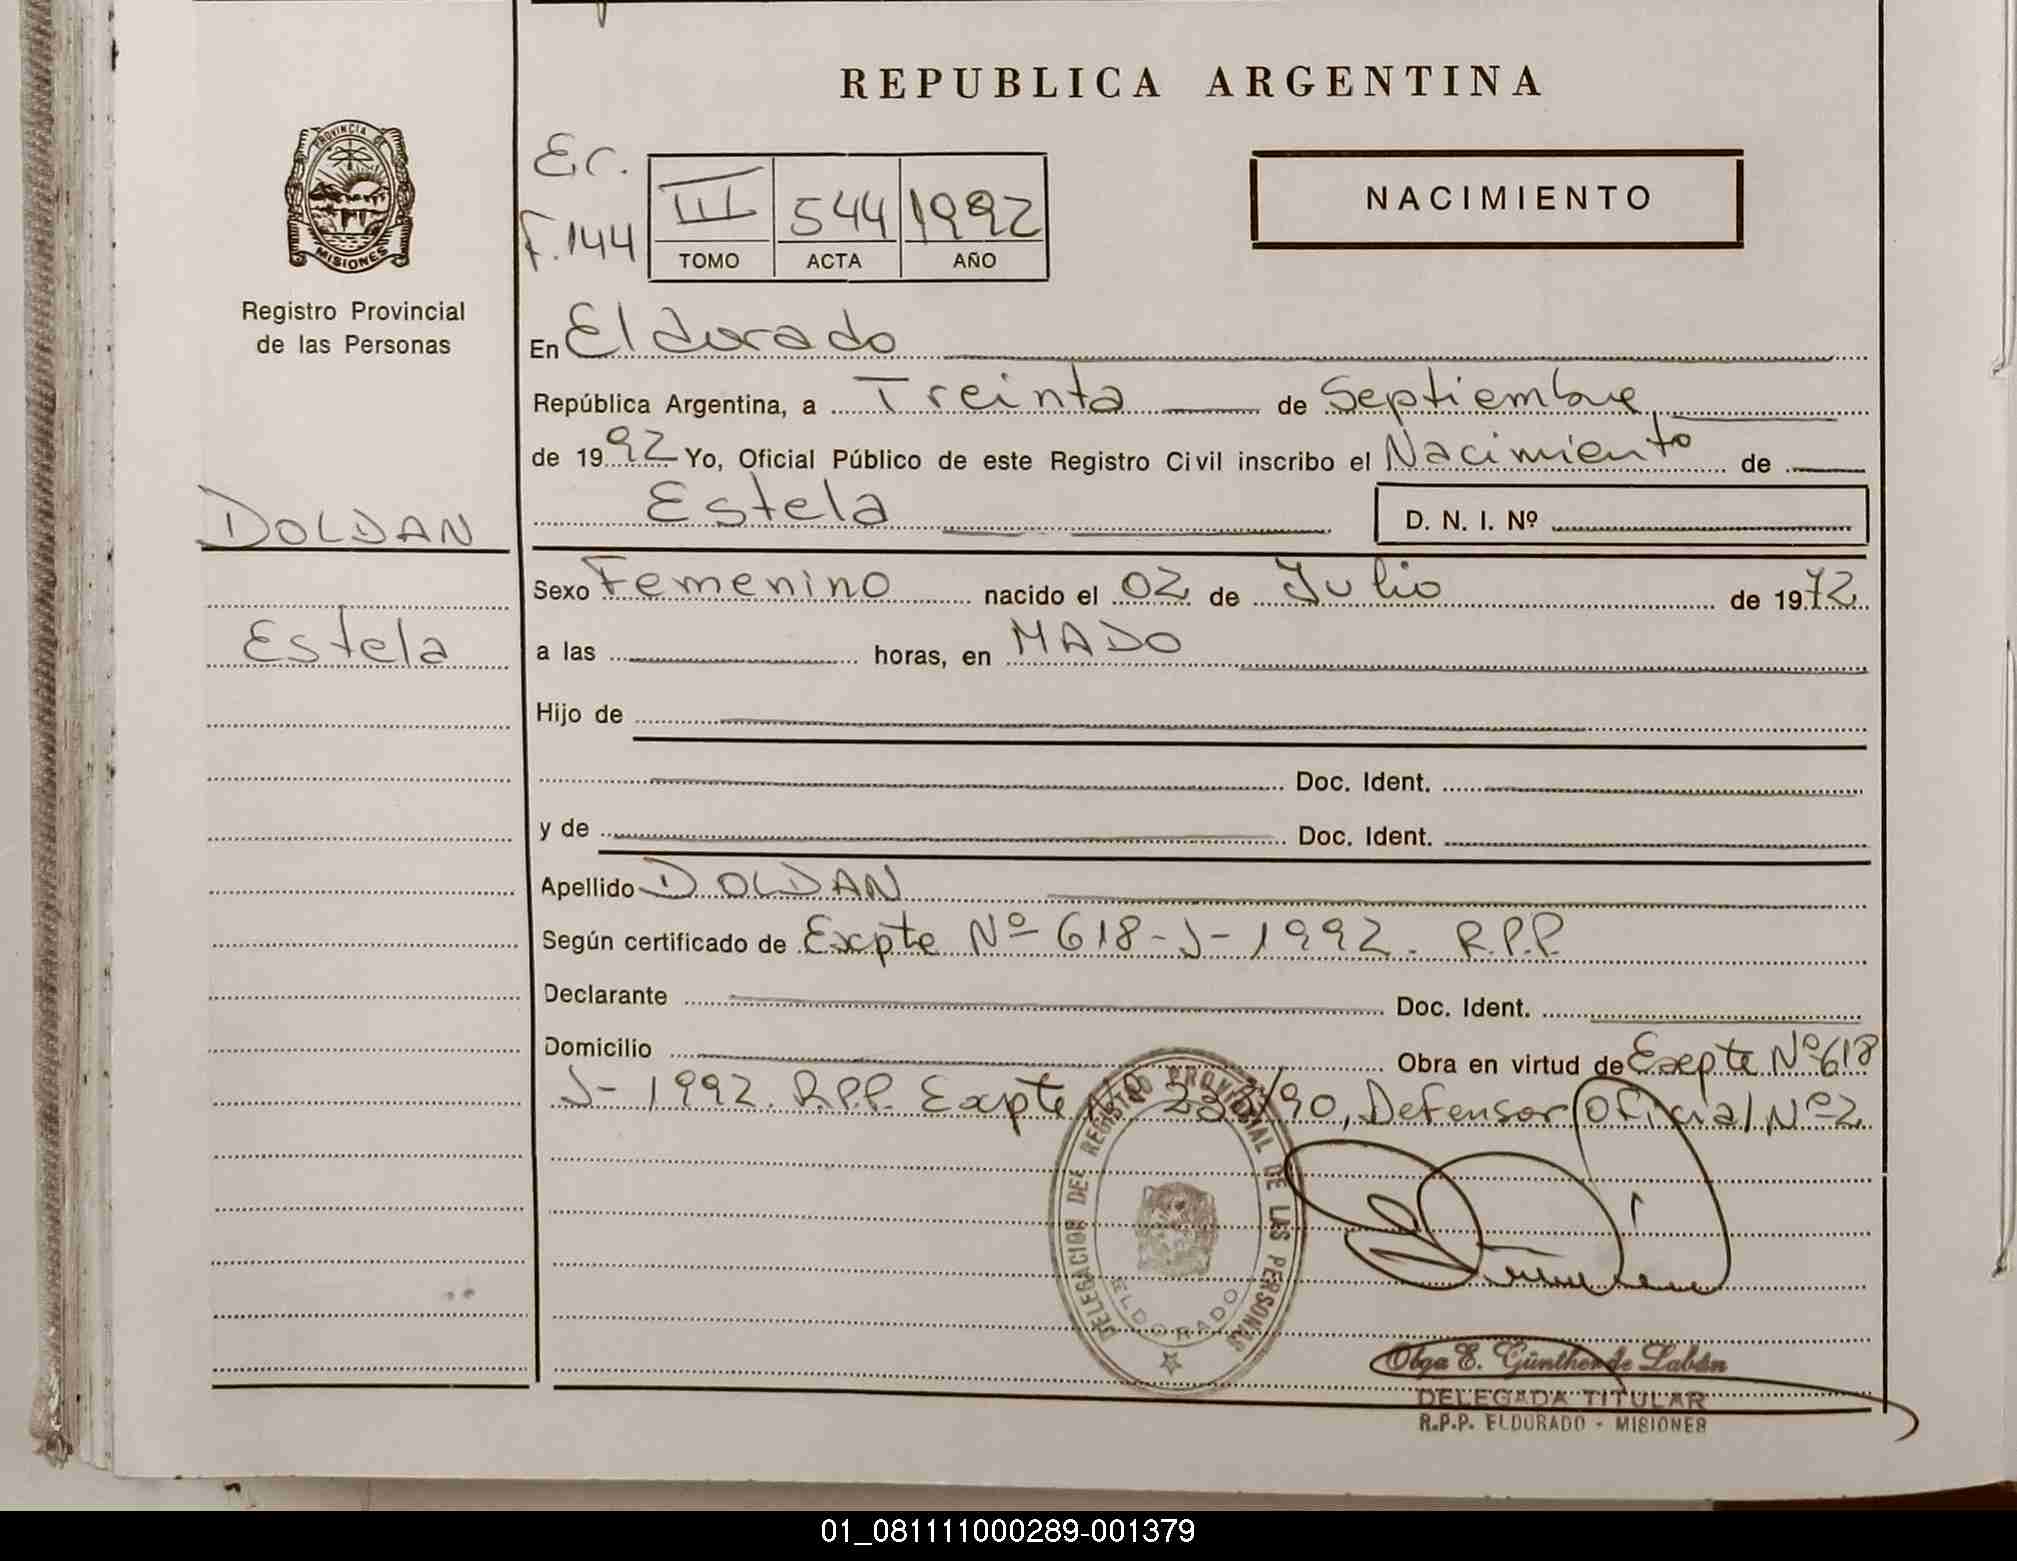 REPUBLICA ARGENTINA
PROVINCIA DE
MISIONES
Registro Provincial
de las Personas
Er.
F.144
III 544 1992
TOMO ACTA AÑO
NACIMIENTO
En Eldorado
República Argentina, a Treinta de Septiembre,
de 1992 Yo, Oficial Público de este Registro Civil inscribo el Nacimiento de
DOLDAN
Estela D. N. I. Nº
Sexo Femenino nacido el 02 de Julio de 1972
Estela
a las horas, en MADO
Hijo de
Doc. Ident.
y de Doc. Ident.
Apellido DOLDAN
Según certificado de Expte Nº 618-J-1992. R.P.P.
Declarante Doc. Ident.
Domicilio Obra en virtud de Exepte Nº 618
J-1992. R.P.P. Expte /90, Defensor Oficial Nº 2
DELEGACION DEL REGISTRO PROVINCIAL DE LAS PERSONAS
ELDORADO
Olga E. Günther de Labán
DELEGADA TITULAR
R.P.P. ELDORADO - MISIONES
01_081111000289-001379